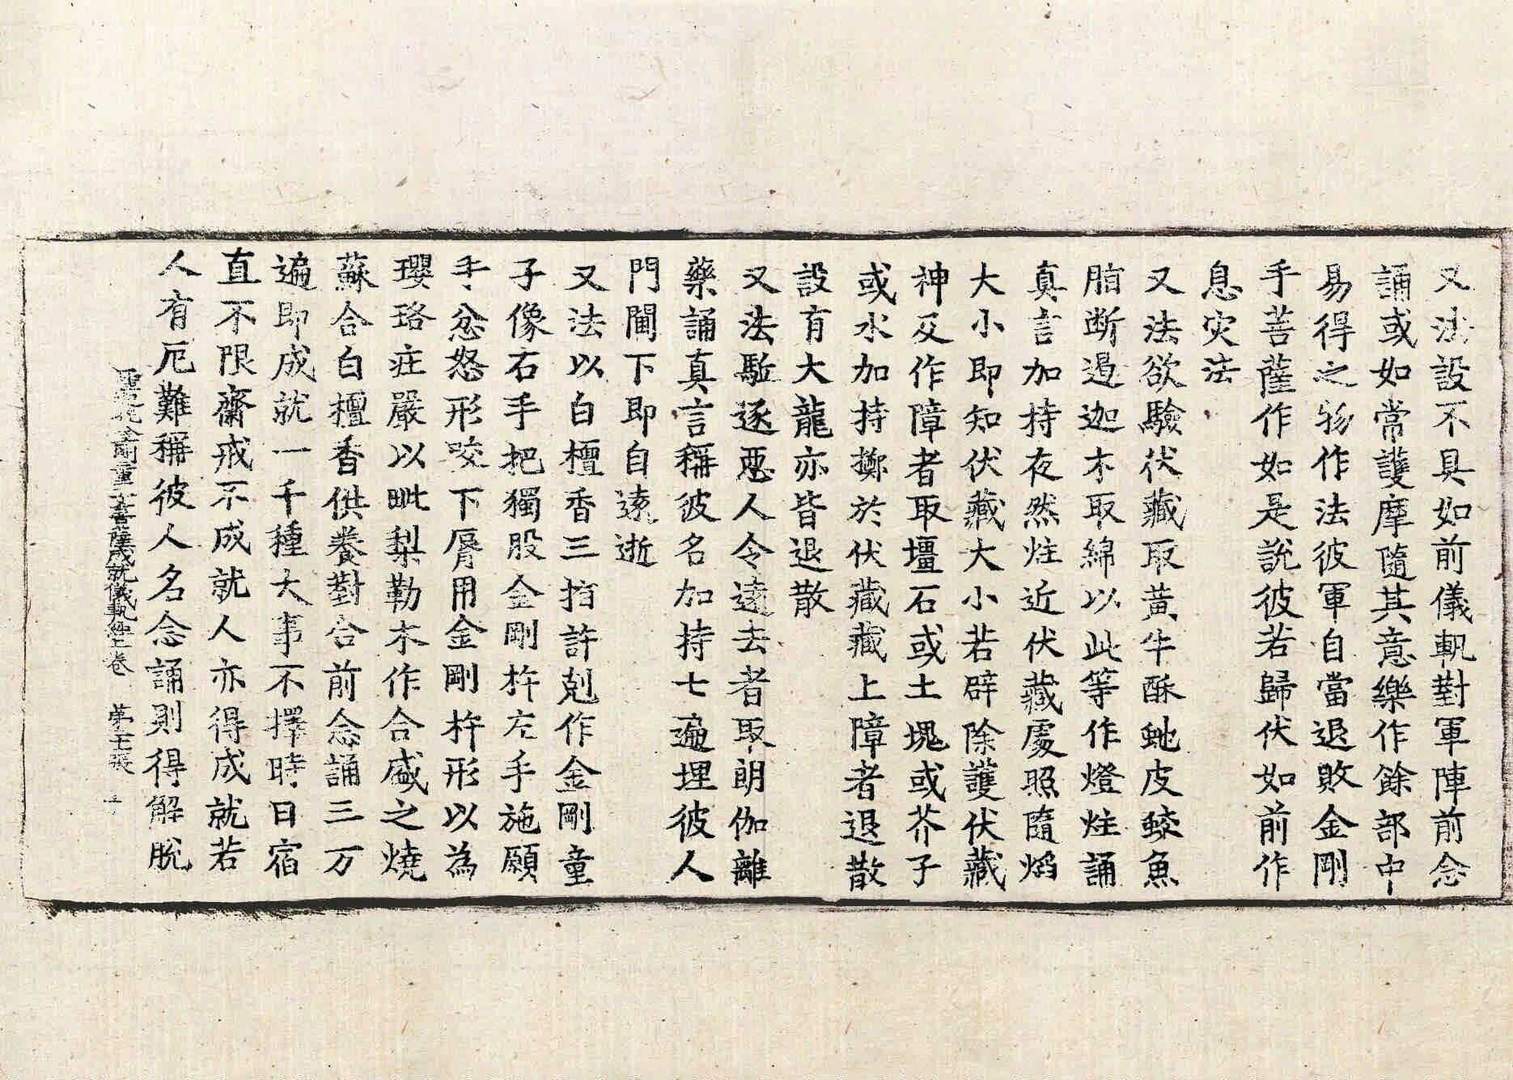 又法設不具如前儀軌對軍陣前念
誦或如常護摩隨其意樂作餘部中
易得之物作法彼軍自當退敗金剛
手菩薩作如是說彼若歸伏如前作
息灾法
又法欲驗伏藏取黃牛酥虵皮鯪魚
脂断過迦木取綿以此等作燈炷誦
真言加持夜然炷近伏藏處照隨焰
大小即知伏藏大小若辟除護伏藏
神及作障者取壇石或土塊或芥子
或水加持擲於伏藏藏上障者退散
設有大龍亦皆退散
又法駈逐惡人令遠去者取朗伽離
藥誦真言稱彼名加持七遍埋彼人
門閫下即自遠逝
又法以白檀香三指許剋作金剛童
子像右手把獨股金剛杵左手施願
手忿怒形咬下脣用金剛杵形以為
瓔珞莊嚴以毗梨勒木作合盛之燒
蘇合白檀香供養對合前念誦三万
遍即成就一千種大事不擇時日宿
直不限齋戒不成就人亦得成就若
人有厄難稱彼人名念誦則得解脫
童子菩薩成就儀軌經上卷 第 張